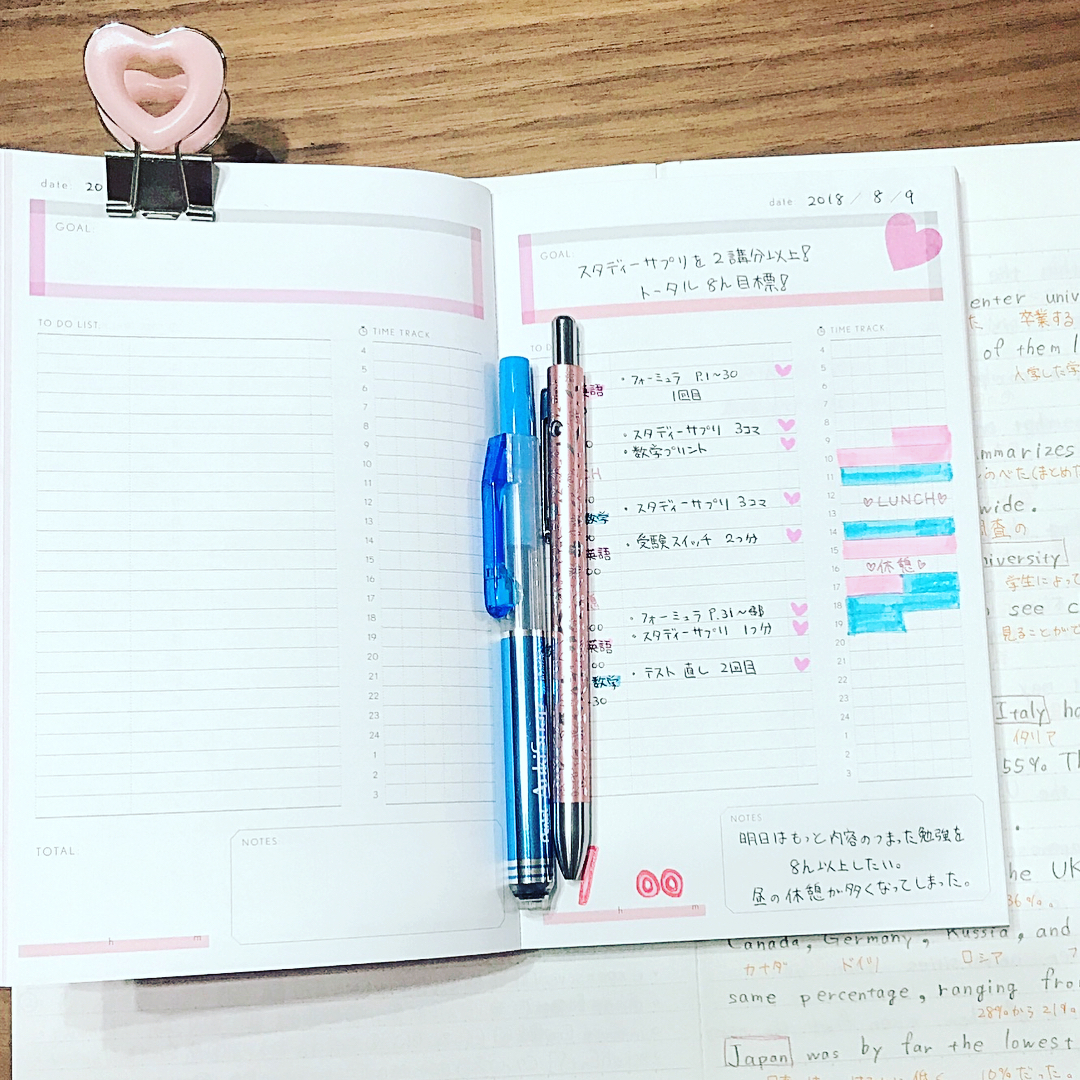 date: 20
GOAL:
TO DO LIST:
TIME TRACK
4
5
6
7
8
9
10
11
12
13
14
15
16
17
18
19
20
21
22
23
24
1
2
3
TOTAL:
NOTES
h m
date 2018 / 8 / 9
GOAL
スタディーサプリを 2講分以上!
トータル 8h 目標!
TO D
英語
・フォーミュラ P.1~30
1回目
・スタディーサプリ 3コマ
・数学プリント
・スタディーサプリ 3コマ
数学
・受験スイッチ 2つ分
英語
00
・フォーミュラ P.31~
00
・スタディーサプリ 1つ分
英語
00
・テスト直し 2回目
数学
30
TIME TRACK
4
5
6
7
8
9
10
11
12
13
14
15
16
17
18
19
20
21
22
23
24
1
2
3
♡LUNCH♡
♡休憩♡
00
h m
NOTES
明日はもっと内容のつまった勉強を
8h以上したい。
昼の休憩が多くなってしまった。
enter univ
卒業する
of them
入学した学
mmarizes
のべた(まとめた
wide.
調査の
niversity
学生によって
see c
見ることがで
Italy ha
イタリア
55% Th
he UK
36%。
Canada, Germany, Russia, and
カナダ ドイツ ロシア
same percentage, ranging from
28%から21%
Japan was by far the lowest
10%だった。